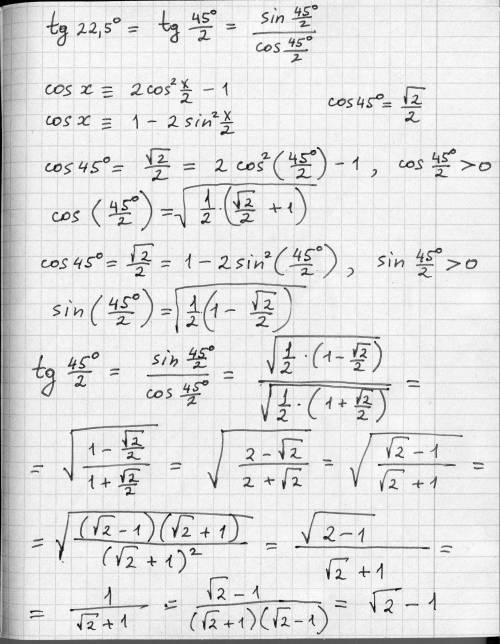 tg 22,5° = tg 45°/2 = (sin 45°/2)/(cos 45°/2)
cos x ≡ 2cos² x/2 − 1
cos x ≡ 1 − 2 sin² x/2
cos 45° = √2/2
cos 45° = √2/2 = 2 cos² (45°/2) − 1 , cos 45°/2 > 0
cos (45°/2) = √(1/2 · (√2/2 + 1))
cos 45° = √2/2 = 1 − 2 sin² (45°/2) , sin 45°/2 > 0
sin (45°/2) = √(1/2 (1 − √2/2))
tg 45°/2 = (sin 45°/2)/(cos 45°/2) = √(1/2 · (1 − √2/2))/√(1/2 · (1 + √2/2)) =
= √((1 − √2/2)/(1 + √2/2)) = √((2 − √2)/(2 + √2)) = √((√2 − 1)/(√2 + 1)) =
= √((√2 − 1)(√2 + 1)/(√2 + 1)²) = √(2 − 1)/(√2 + 1) =
= 1/(√2 + 1) = (√2 − 1)/((√2 + 1)(√2 − 1)) = √2 − 1